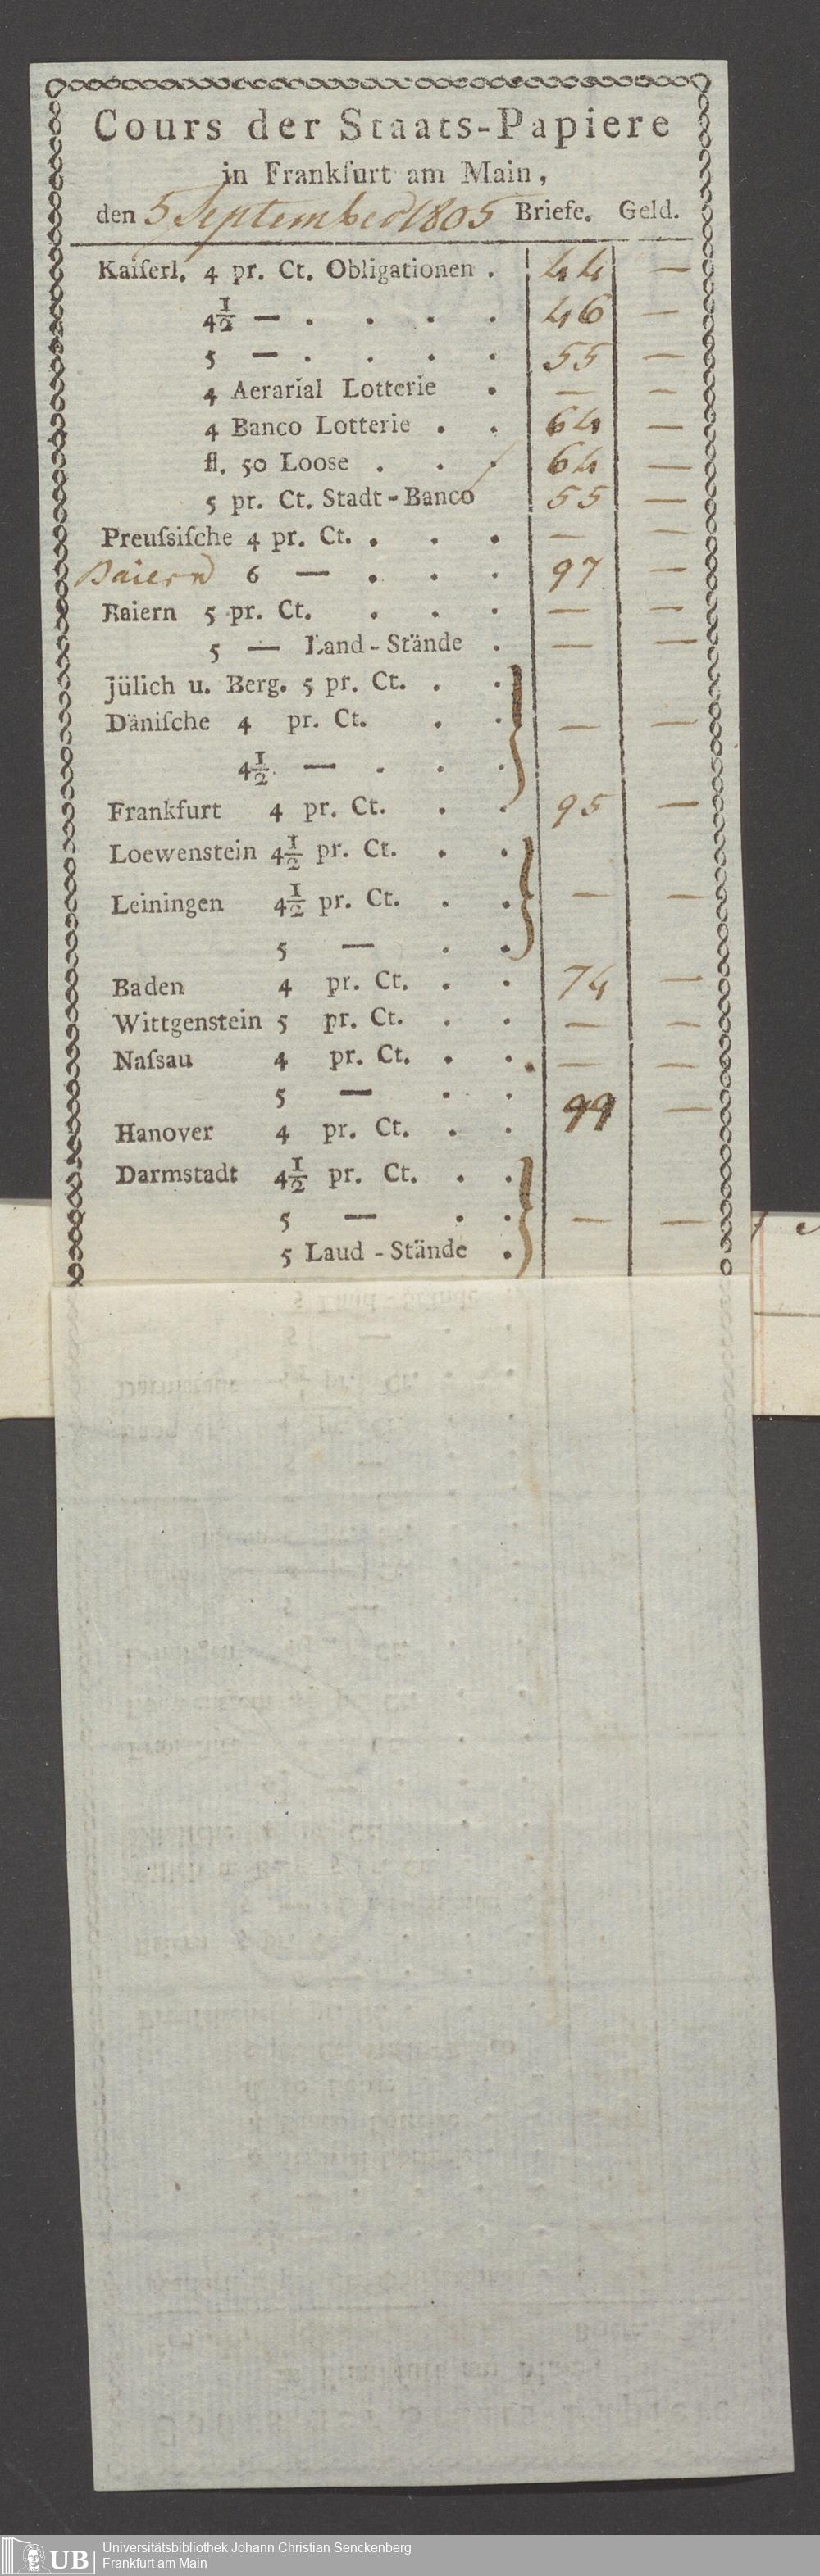 Cours der Staats-Papiere
in Frankfurt am Main,
den 5 September 1805 Briefe. Geld.
Kaiſerl. 4 pr. Ct. Obligationen . 44 —
4 1/2 — . . . . 46 —
5 — . . . . 55 —
4 Aerarial Lotterie . — —
4 Banco Lotterie . . 64 —
fl. 50 Looſe . . . 64 —
5 pr. Ct. Stadt-Banco 55 —
Preuſsiſche 4 pr. Ct. . . . — —
Baiern 6 — . . . 97 —
Baiern 5 pr. Ct. . . . — —
5 — Land-Stände . — —
Jülich u. Berg. 5 pr. Ct. . .
Däniſche 4 pr. Ct. . . — —
4 1/2 — . . .
Frankfurt 4 pr. Ct. . . 95 —
Loewenstein 4 1/2 pr. Ct. . .
Leiningen 4 1/2 pr. Ct. . . — —
5 — . .
Baden 4 pr. Ct. . . 74 —
Wittgenstein 5 pr. Ct. . . — —
Naſsau 4 pr. Ct. . . — —
5 — . . 99 —
Hanover 4 pr. Ct. . .
Darmstadt 4 1/2 pr. Ct. . .
5 — . . — —
5 Laud-Stände .
UB
Universitätsbibliothek Johann Christian Senckenberg
Frankfurt am Main